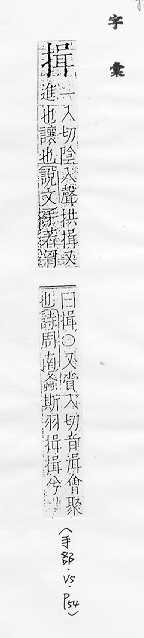 字彙
揖
一入切陰入聲拱揖又
進也讓也說文手著胸
曰揖○又入切音湒會聚
也詩周南螽斯羽揖揖兮
(手部.V5.P54)